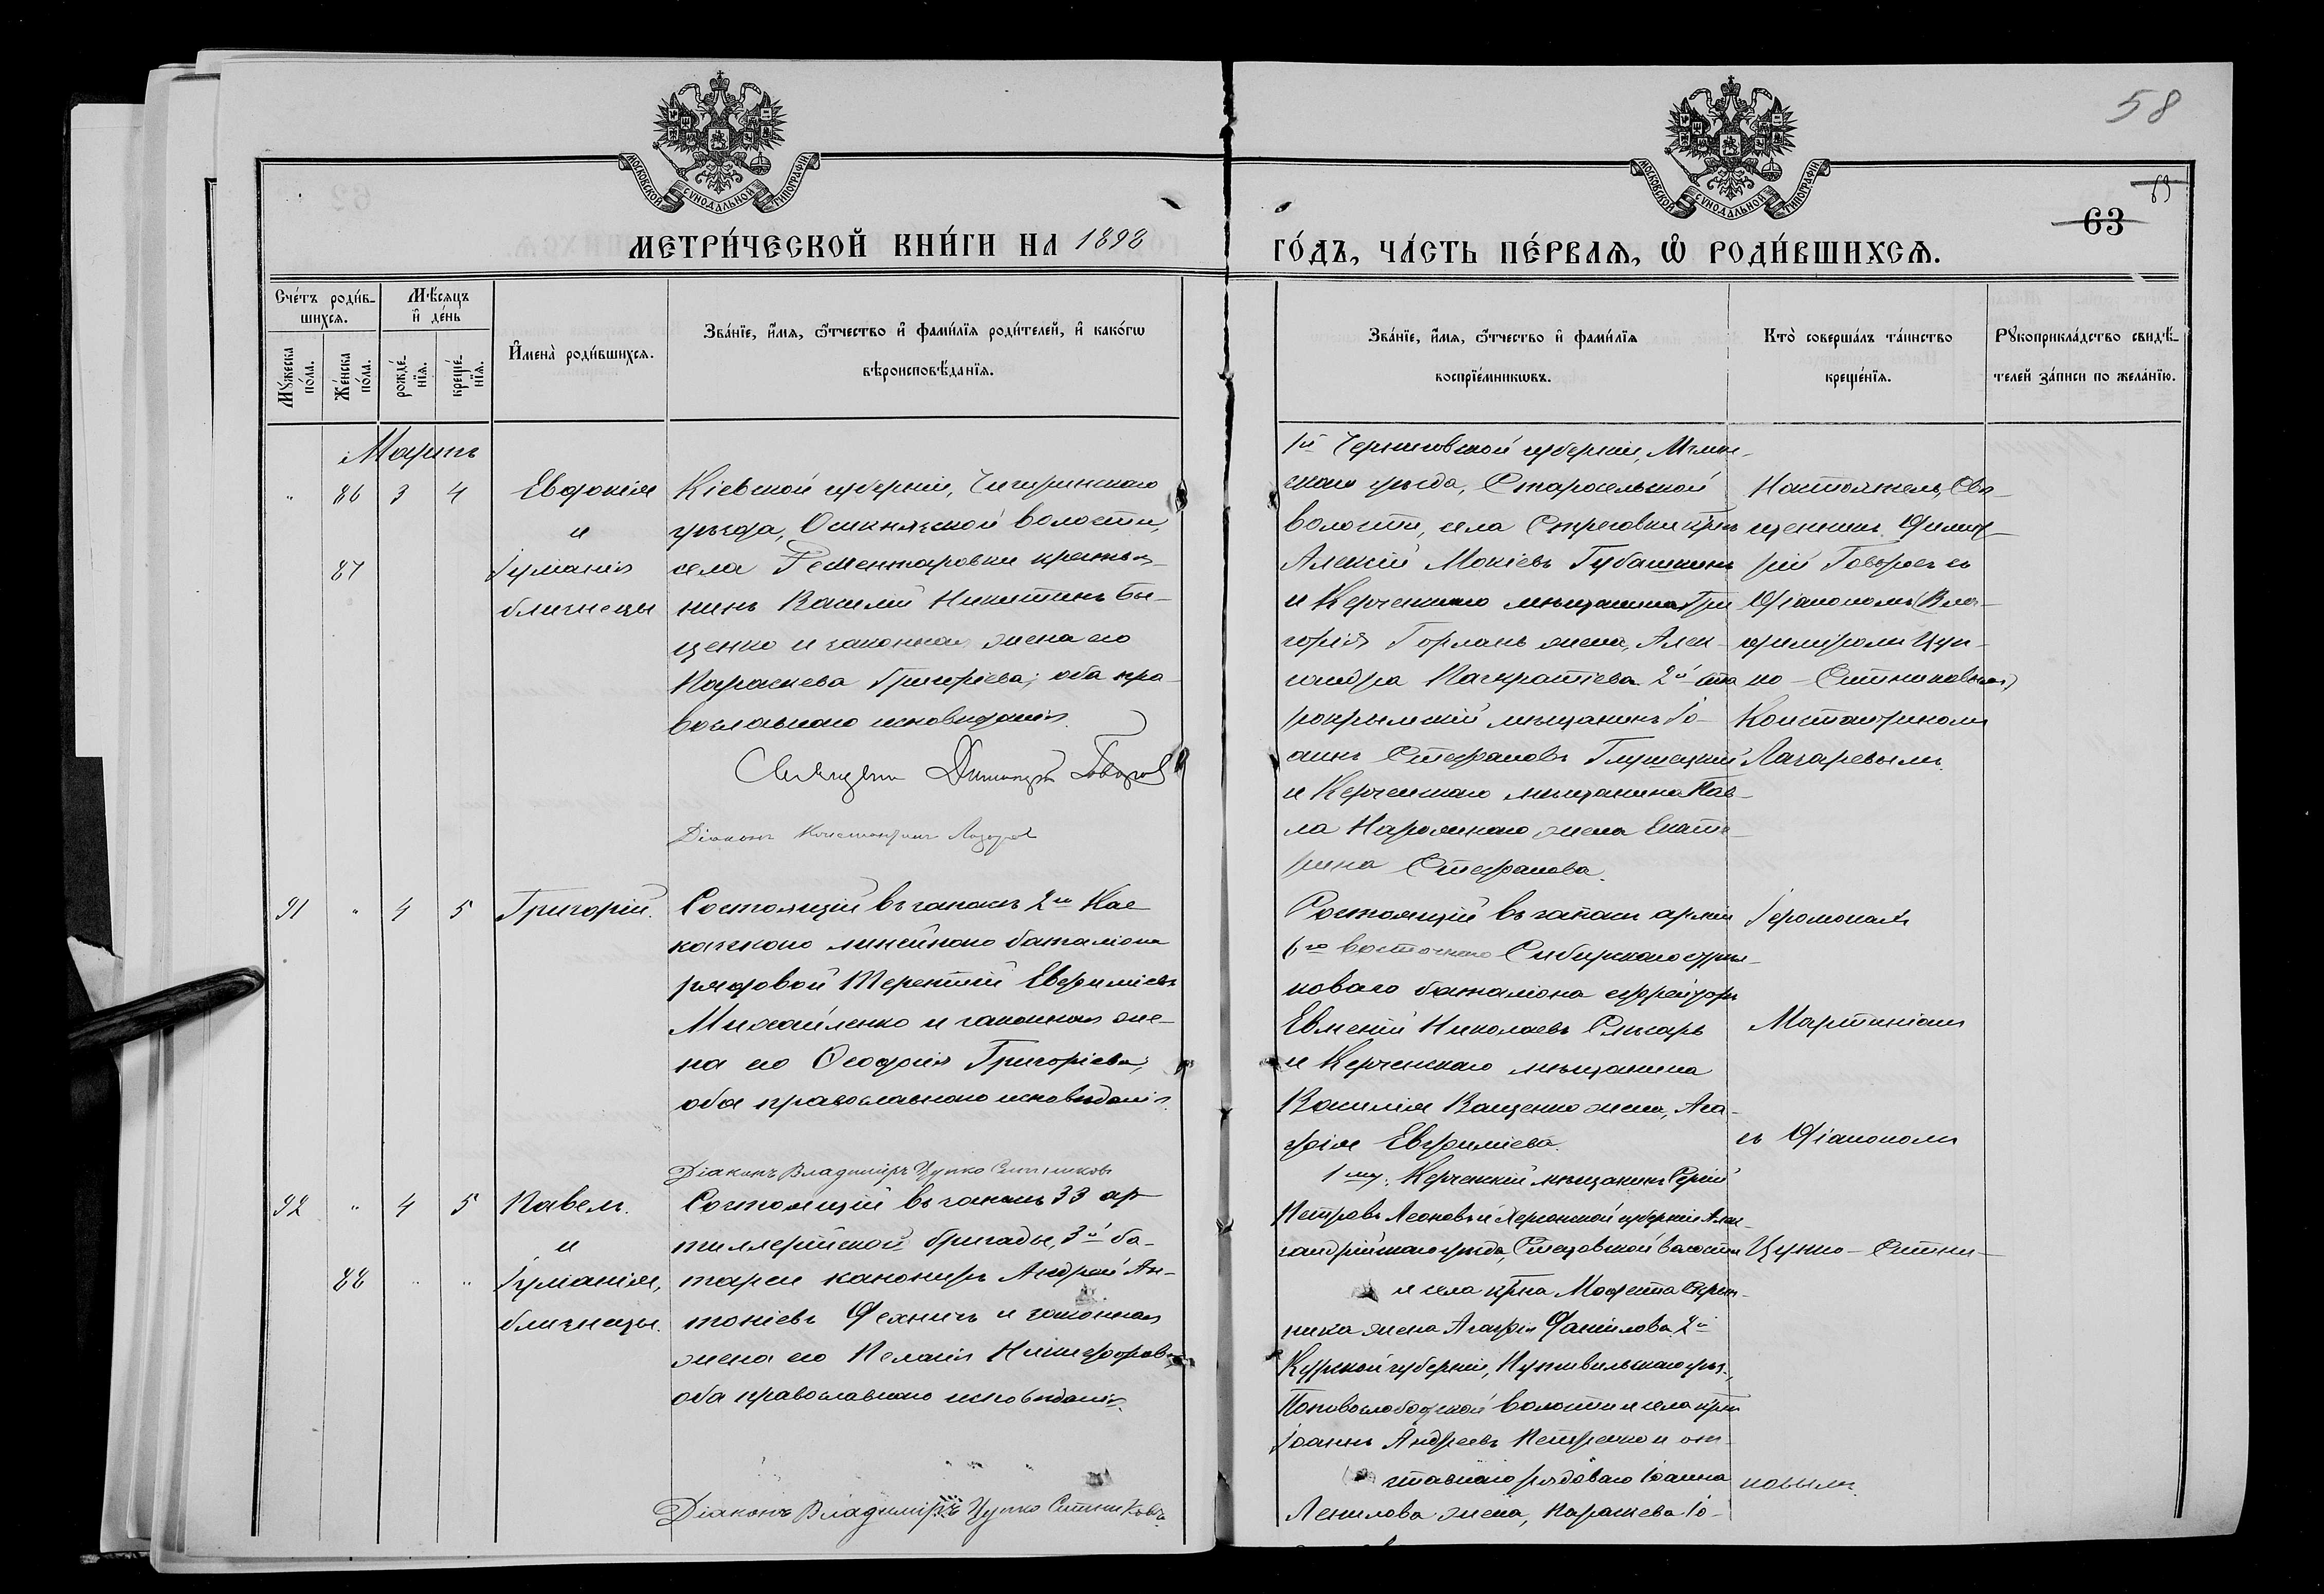 58
МОСКОВСКОЙ СУНОДАЛЬНОЙ ТИПОГРАФІИ
МОСКОВСКОЙ СУНОДАЛЬНОЙ ТИПОГРАФІИ
63
63
МЕТРИ́ЧЕСКОЙ КНИ́ГИ НА 1898
ГО́ДЪ, ЧА́СТЬ ПЕ́РВАѦ, Ѡ РОДИ́ВШИХСѦ.
Сче́тъ роди́в-
шихсѧ.
Мѣ́сѧцъ
и҆ де́нь
Мꙋ́жеска
по́ла.
Же́нска
по́ла.
рожде́-
нїѧ.
креще́-
нїѧ.
И҆мена̀ роди́вшихсѧ.
Зва́нїе, и҆́мѧ, ѻ҆́тчество и҆ фами́лїѧ роди́телей, и҆ како́гѡ
вѣроисповѣ́данїѧ.
Зва́нїе, и҆́мѧ, ѻ҆́тчество и҆ фами́лїѧ
воспрїе́мникѡвъ.
Кто̀ соверша́лъ та́инство
креще́нїѧ.
Рꙋкоприкла́дство свидѣ́-
телей за́писи по жела́нїю.
Мартъ
" 86 3 4
87
Евдокія
и
Іуліанія
близнецы
Кіевской губерніи, Чигиринскаго
уѣзда, Оситняжской волости,
села Рементаровки крестья-
нинъ Василій Никитинъ Бы-
ценко и законная жена его
Параскева Григоріева; оба пра-
вославнаго исповѣданія.
Священн Димитрій Говоровъ
Діаконъ Константинъ Лазаревъ
1й Черниговской губерніи, Мглин-
скаго уѣзда, Старосельской
волости, села Стреговки крнъ
Алексій Мокіевъ Губашкинъ
и Керченскаго мѣщанина Гри
горія Горланъ жена, Алек-
сандра Панкратіева. 2й ста
рокрымскій мѣщанинъ Іо-
аннъ Стефановъ Глушецкій
и Керченскаго мѣщанина Пав-
ла Нарожнаго жена Екате-
рина Стефанова.
Настоятель, Свя-
щенникъ Димит-
рій Говоровъ съ
Діакономъ (Вла-
диміромъ Цуп-
ко-Ситниковымъ)
Константиномъ
Лазаревымъ.
91 " 4 5 Григорій.
Состоящій въ запасѣ 2го Кав
казскаго линейнаго баталіона
рядовой Терентій Евфиміевъ
Михайленко и законная же-
на его Ѳеодосія Григоріева;
оба православнаго исповѣданія.
Діаконъ Владиміръ Цупко Ситниковъ
Состоящій въ запасѣ арміи
6го Восточнаго Сибирскаго стрѣл-
коваго баталіона ефрейторъ
Евменій Николаевъ Слѣсарь
и Керченскаго мѣщанина
Василія Ващенко жена, Ага-
фія Евфиміева.
Іеромонахъ
Мартиніанъ
съ Діакономъ
92 " 4 5 Павелъ.
и
88 " " Іуліанія,
близнецы.
Состоящій въ запасѣ 33 ар-
тиллерійской бригады, 3й ба-
тареи канониръ Андрей Ан-
тоніевъ Дехничъ и законная
жена его Пелагія Никифорова
оба православнаго исповѣданія.
Діаконъ Владиміръ Цупко Ситниковъ.
1му: Керченскій мѣщанинъ Сергій
Петровъ Леоновъ и Херсонской губерніи Алек-
сандрійскаго уѣзда, волости
и села крна Модеста
ника жена Агафія Даніилова. 2й
Курской губерніи, Путивльскаго уѣз.,
Поповослободской волости и села крнъ
Іоаннъ Андреевъ Петренко и от-
ставнаго рядоваго Іоанна
Ленилова жена, Параскева Іо-
Цупко-Ситни-
ковымъ.